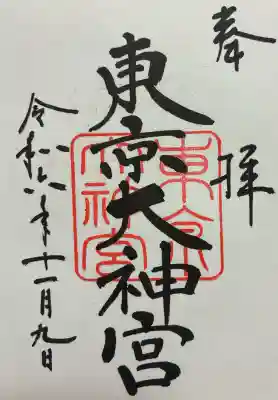 奉拝
東京大神宮
東京大神宮
令和六年十一月九日